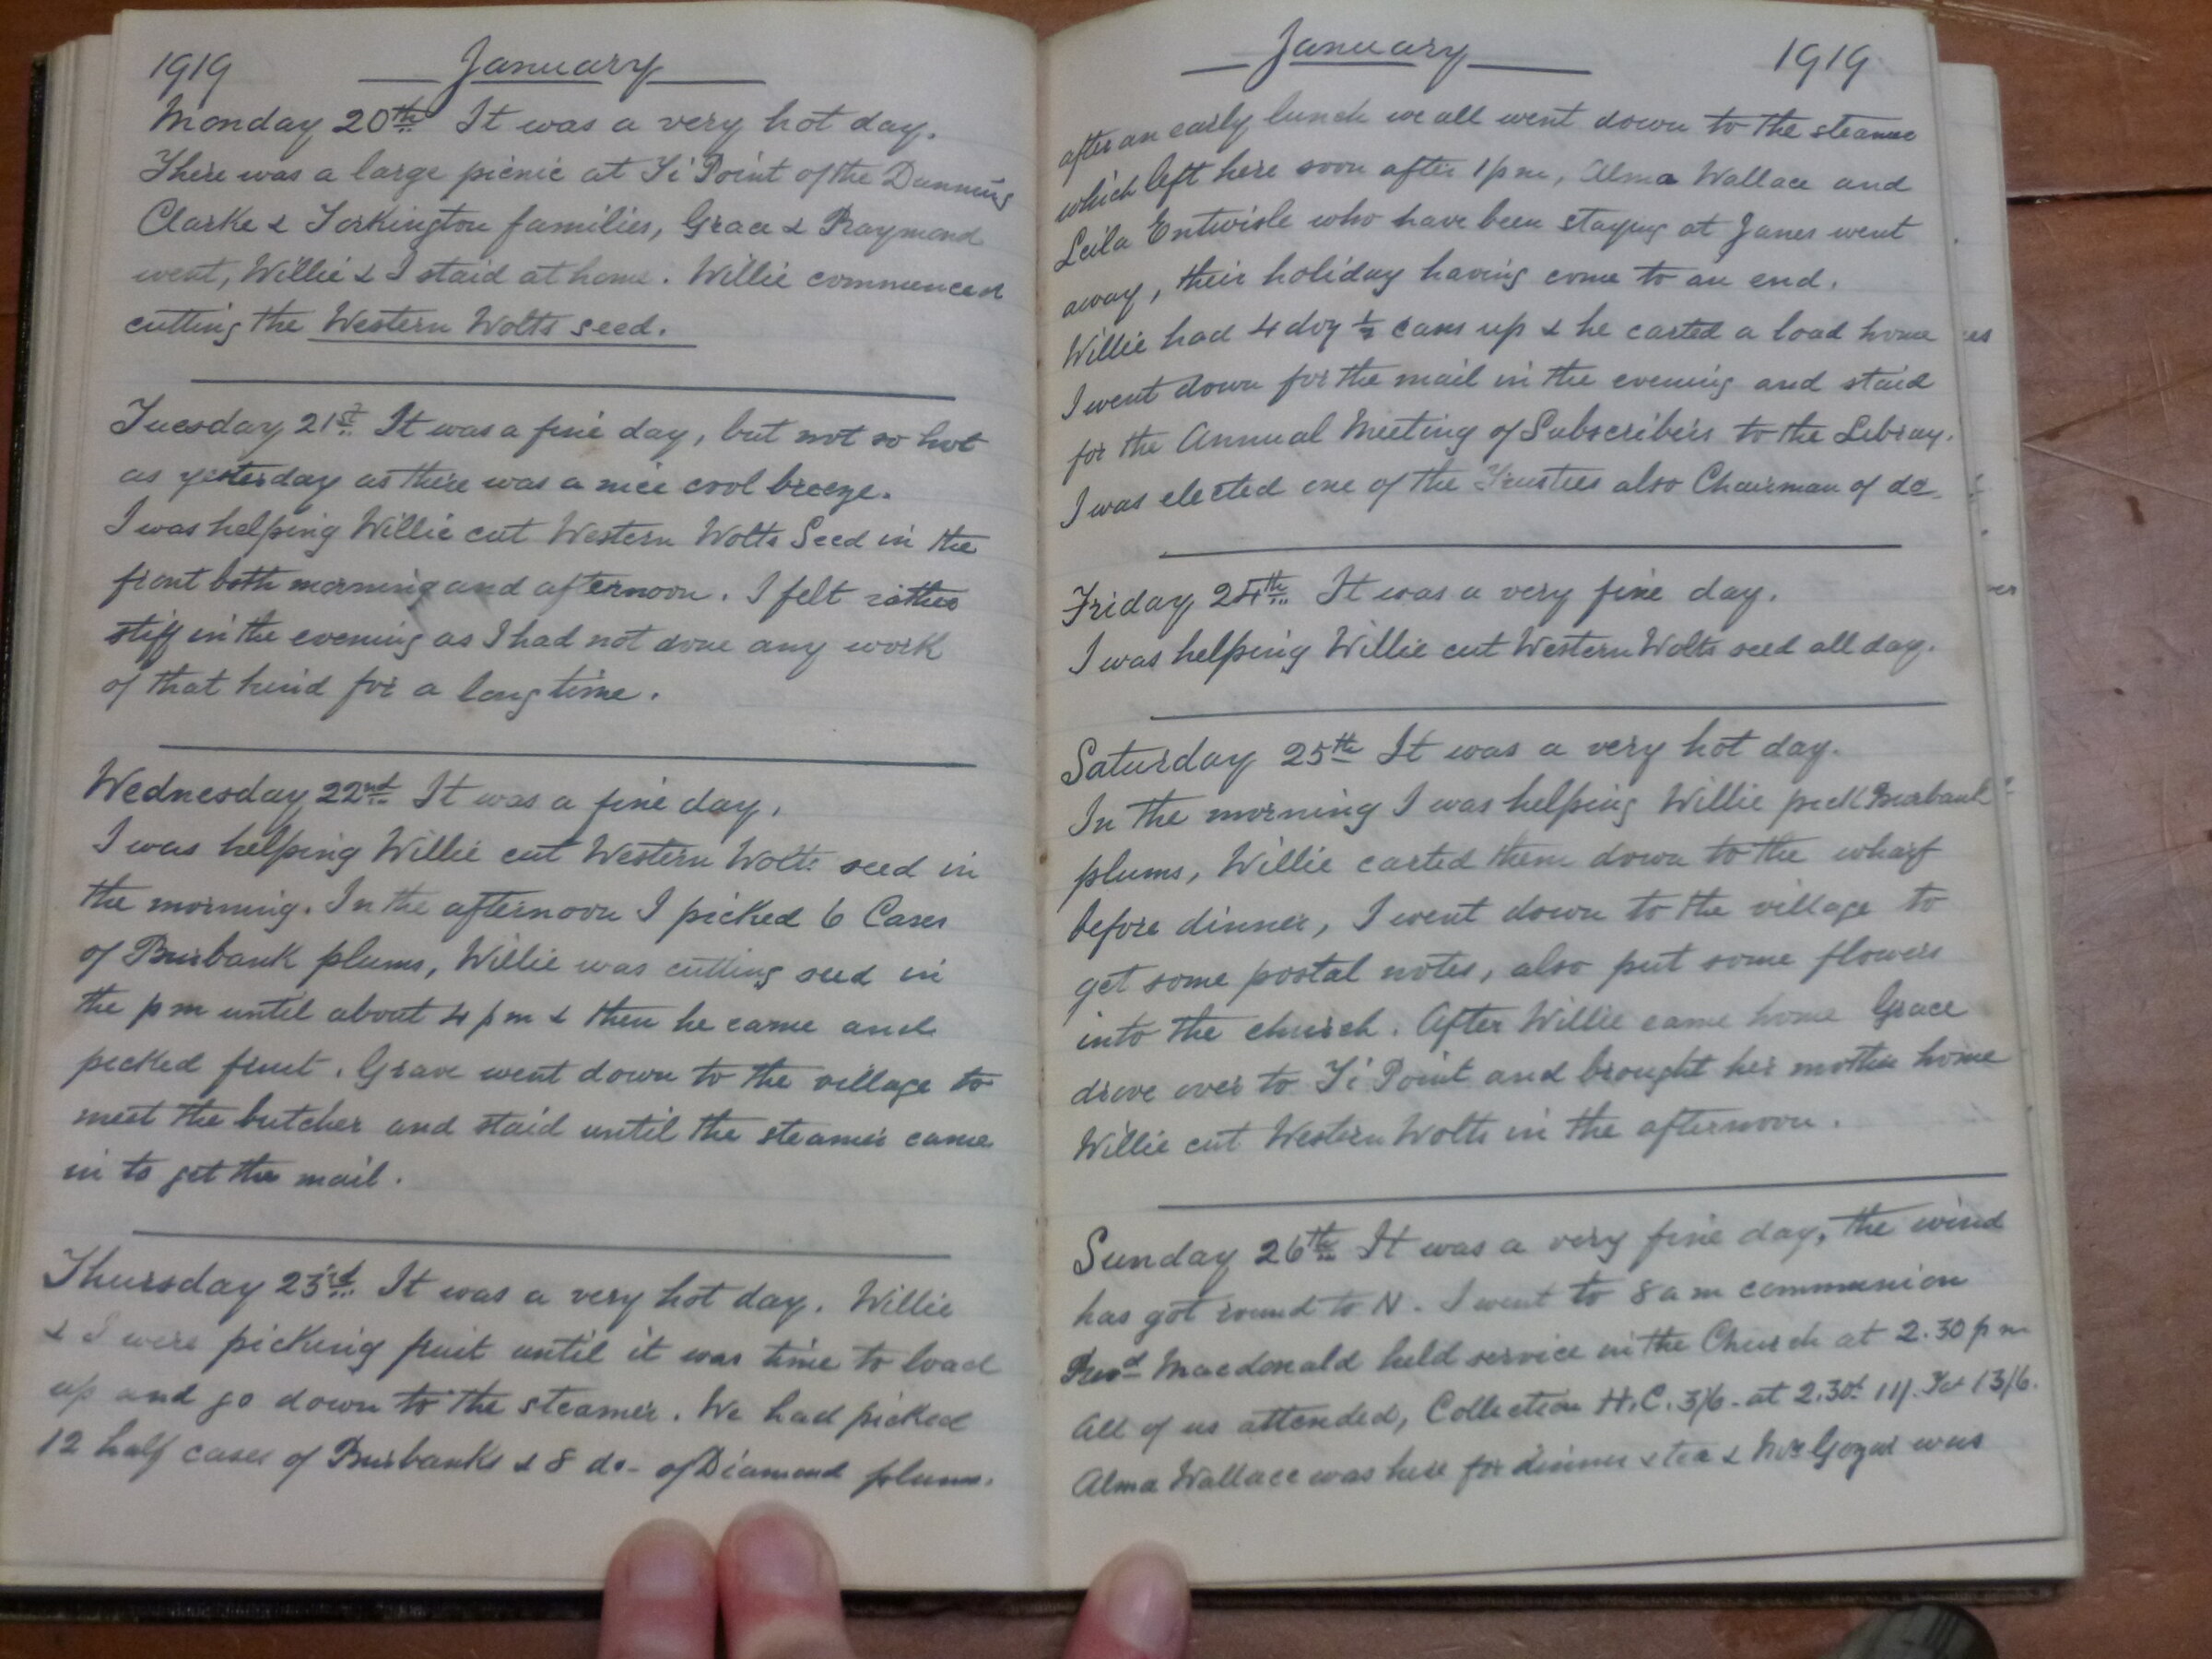 1919 January
Monday 20th It was a very hot day.
There was a large picnic at Ti Point of the Dunning
Clarke & Torkington families, Grace & Raymond
went, Willie & I staid at home. Willie commenced
cutting the Western Wolts seed.
Tuesday 21st It was a fine day, but not so hot
as yesterday as there was a nice cool breeze.
I was helping Willie cut Western Wolts Seed in the
front both morning and afternoon. I felt rather
stiff in the evening as I had not done any work
of that kind for a long time.
Wednesday 22nd It was a fine day.
I was helping Willie cut Western Wolts seed in
the morning. In the afternoon I picked 6 Cases
of Burbank plums, Willie was cutting seed in
the p m until about 4 p m & then he came and
picked fruit. Grace went down to the village to
meet the butcher and staid until the steamer came
in to get the mail.
Thursday 23rd It was a very hot day. Willie
& I were picking fruit until it was time to load
up and go down to the steamer. We had picked
12 half cases of Burbanks & 8 do- of Diamond plums.
January 1919
after an early lunch we all went down to the steamer
which left here soon after 1 p m, Alma Wallace and
Leila Entwisle who have been staying at Janes went
away, their holiday having come to an end.
Willie had 4 doz ½ cases up & he carted a load home
I went down for the mail in the evening and staid
for the Annual Meeting of Subscribers to the Libray.
I was elected one of the Trustees also Chairman of do-
Friday 24th It was a very fine day.
I was helping Willie cut Western Wolts seed all day.
Saturday 25th It was a very hot day.
In the morning I was helping Willie pick Burbank
plums, Willie carted them down to the wharf
before dinner, I went down to the village to
get some postal notes, also put some flowers
into the church. After Willie came home Grace
drove over to Ti Point and brought her mother home
Willie cut Western Wolts in the afternoon.
Sunday 26th It was a very fine day, the wind
has got round to N. I went to 8 a m communion
Revd Macdonald held service in the Church at 2.30 p m
All of us attended, Collection H.C. 3/6 - at 2.30 11/. Tot 13/6.
Alma Wallace was here for dinner & tea & was